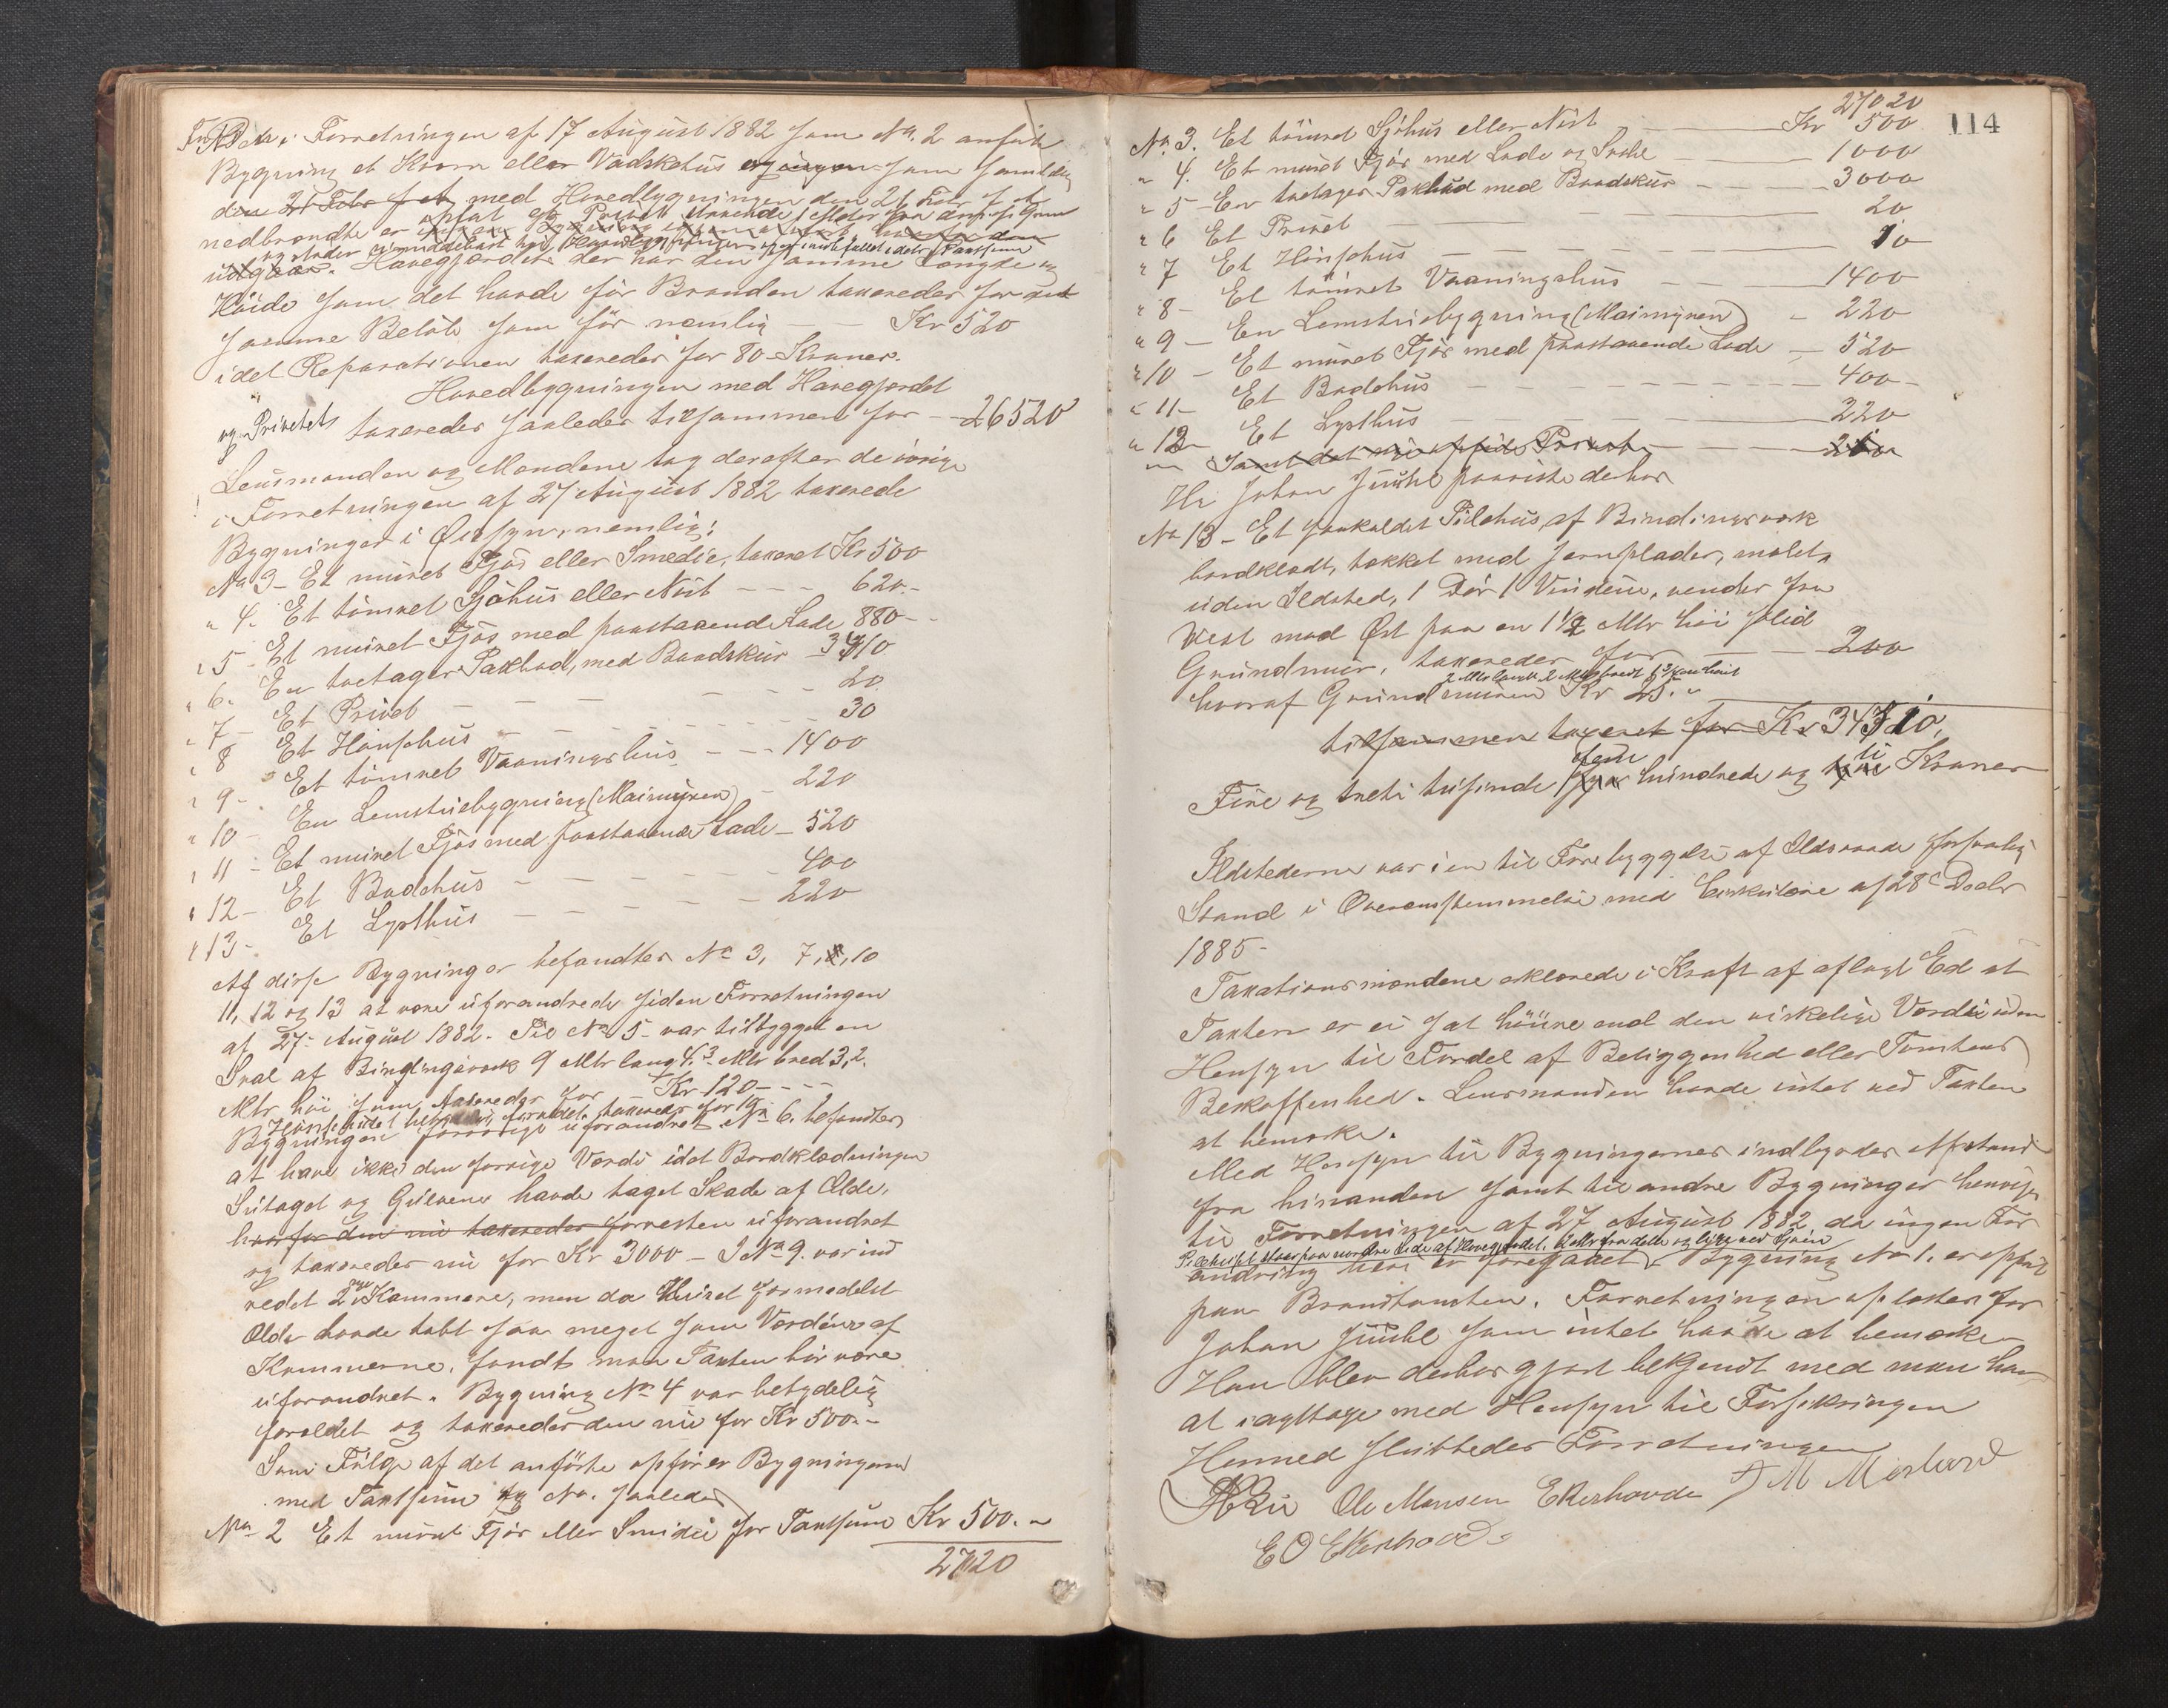 Den i Forretningen af 17 August 1882 som No. 2 anførte
Bygning et Kvern eller Vadskehus og ingen som samtidig
den 21 Febr f A. med Hovedbygningen den 21 Febr f A.
nedbrændte er opført et Privet
og staaer umiddelbart ved Hovedbygningen
udgaar. Havegjærdet der har den samme Længde og
Høide som det havde før Branden taxeredes for det
samme Beløb som før nemlig — — Kr 520
idet Reparationen taxeredes for 80 Kroner.
Hovedbygningen med Havegjærdet
og Privetet taxeredes saaledes tilsammen for — 26520
Lensmanden og Mændene tog derefter de øvrige
i Forretningen af 27 August 1882 taxerede
Bygninger i Øiesyn, nemlig:
No 3 – Et muret Fjøs eller Smedie, taxeret Kr 500
" 4. Et tømret Sjøhus eller Nøst - - - 620.-
" 5 – Et muret Fjøs med paastaaende Lade 880 -
" 6. En toetages Pakbod, med Baadskur – 3410
" 7 – Et Privet — — — 20
" 8 Et Hønsehus - - - 30
" 9 – Et tømret Vaaningshus - - - 1400
" 10 – En Lemstuebygning (Maimyren) – 220
" 11 – Et muret Fjøs med paastaaende Lade – 520
" 12 – Et Badehus - - - 400
" 13 – Et Lysthus - - - 220
Af disse Bygninger befandtes No 3, 7, 8, 10
11, 12 og 13 at være uforandrede siden Forretningen
af 27 August 1882. Til No 5 var tilbygget en
Sval af Bindingsværk 9 Mtr lang 4,3 Mtr bred 3,2
Mtr høi som taxeredes for Kr 120 - - -
Hønsehuset forældet taxeredes for 10
Bygningen forøvrigt uforandret. No 6. befandtes
at have ikke den forrige Værdi idet Bordklædningen
Sutaget og Gulvene havde taget Skade af Ælde,
hvorfor den nu taxeredes forresten uforandret
og taxeredes nu for Kr 3000 – I No 9. var ind
redet 2 nye Kammere, men da Huset formedelst
Ælde havde tabt saa meget som Værdien af
Kammerne, fandt man Taxten bør være
uforandret. Bygning No 4 var betydelig
forældet og taxeredes den nu for Kr 500.-
Som Følge af det anførte opføres Bygningerne
med Taxtsum og No. saaledes
No 2 Et muret Fjøs eller Smidie for Taxtsum Kr 500.-
27020
114
27020
No 3. Et tømret Sjøhus eller Nøst — Kr 500
" 4. Et muret Fjøs med Lade og Svale — 1000
" 5 – En toetages Pakbod med Baadskur — 3000
" 6 Et Privet — 20
" 7 Et Hønsehus — 10
" 8 – Et tømret Vaaningshus — 1400
" 9 – En Lemstuebygning (Maimyren) – 220
" 10 – Et muret Fjøs med paastaaende Lade — 520
" 11 – Et Badehus — 400 -
" 12 – Et Lysthus — 220
Samt det nu opførte Privet — 20
Hr Johan Juuhl paaviste derhos
No 13 – Et saakaldet Pilehus, af Bindingsværk
bordklædt, tækket med Jernplader, malet,
uden Ildsted, 1 Dør 1 Vindue, vender fra
Vest mod Øst paa en 1 1/2 Mtr høi solid
Grundmur, taxeredes for — — 200
hvoraf Grundmuren Kr 25.-
tilsammen taxeret for Kr 34510,
Fire og treti tusinde fem hundrede og ti Kroner
Ildstederne var i en til Forebyggelse af Ildsvaade forsvarlig
Stand i Overensstemmelse med Cirkulære af 28 Decbr
1885-
Taxationsmændene erklærede i Kraft af aflagt Ed at
Taxten er ei sat høiere end den virkelige Værdi uden
Hensyn til Fordel af Beliggenhed eller Tomtens
Beskaffenhed. Lensmanden havde intet ved Taxten
at bemærke.
Med Hensyn til Bygningernes indbyrdes Afstand
fra hinanden samt til andre Bygninger henvises
til Forretningen af 27 August 1882, da ingen For
Pilehuset staar paa nordre Side af Havegjærdet, 2 Mtr fra dette og lige ved Sjøen
andring heri er foregaaet. Bygning No 1. er opført
paa Brandtomten. Forretningen oplæstes for
Johan Juuhl som intet havde at bemærke
Han blev derhos gjort bekjendt med man har
at iagttage med Hensyn til Forsikringen
Hermed sluttedes Forretningen
Ole Monsen Ekerhovde
E O Ekerhovde